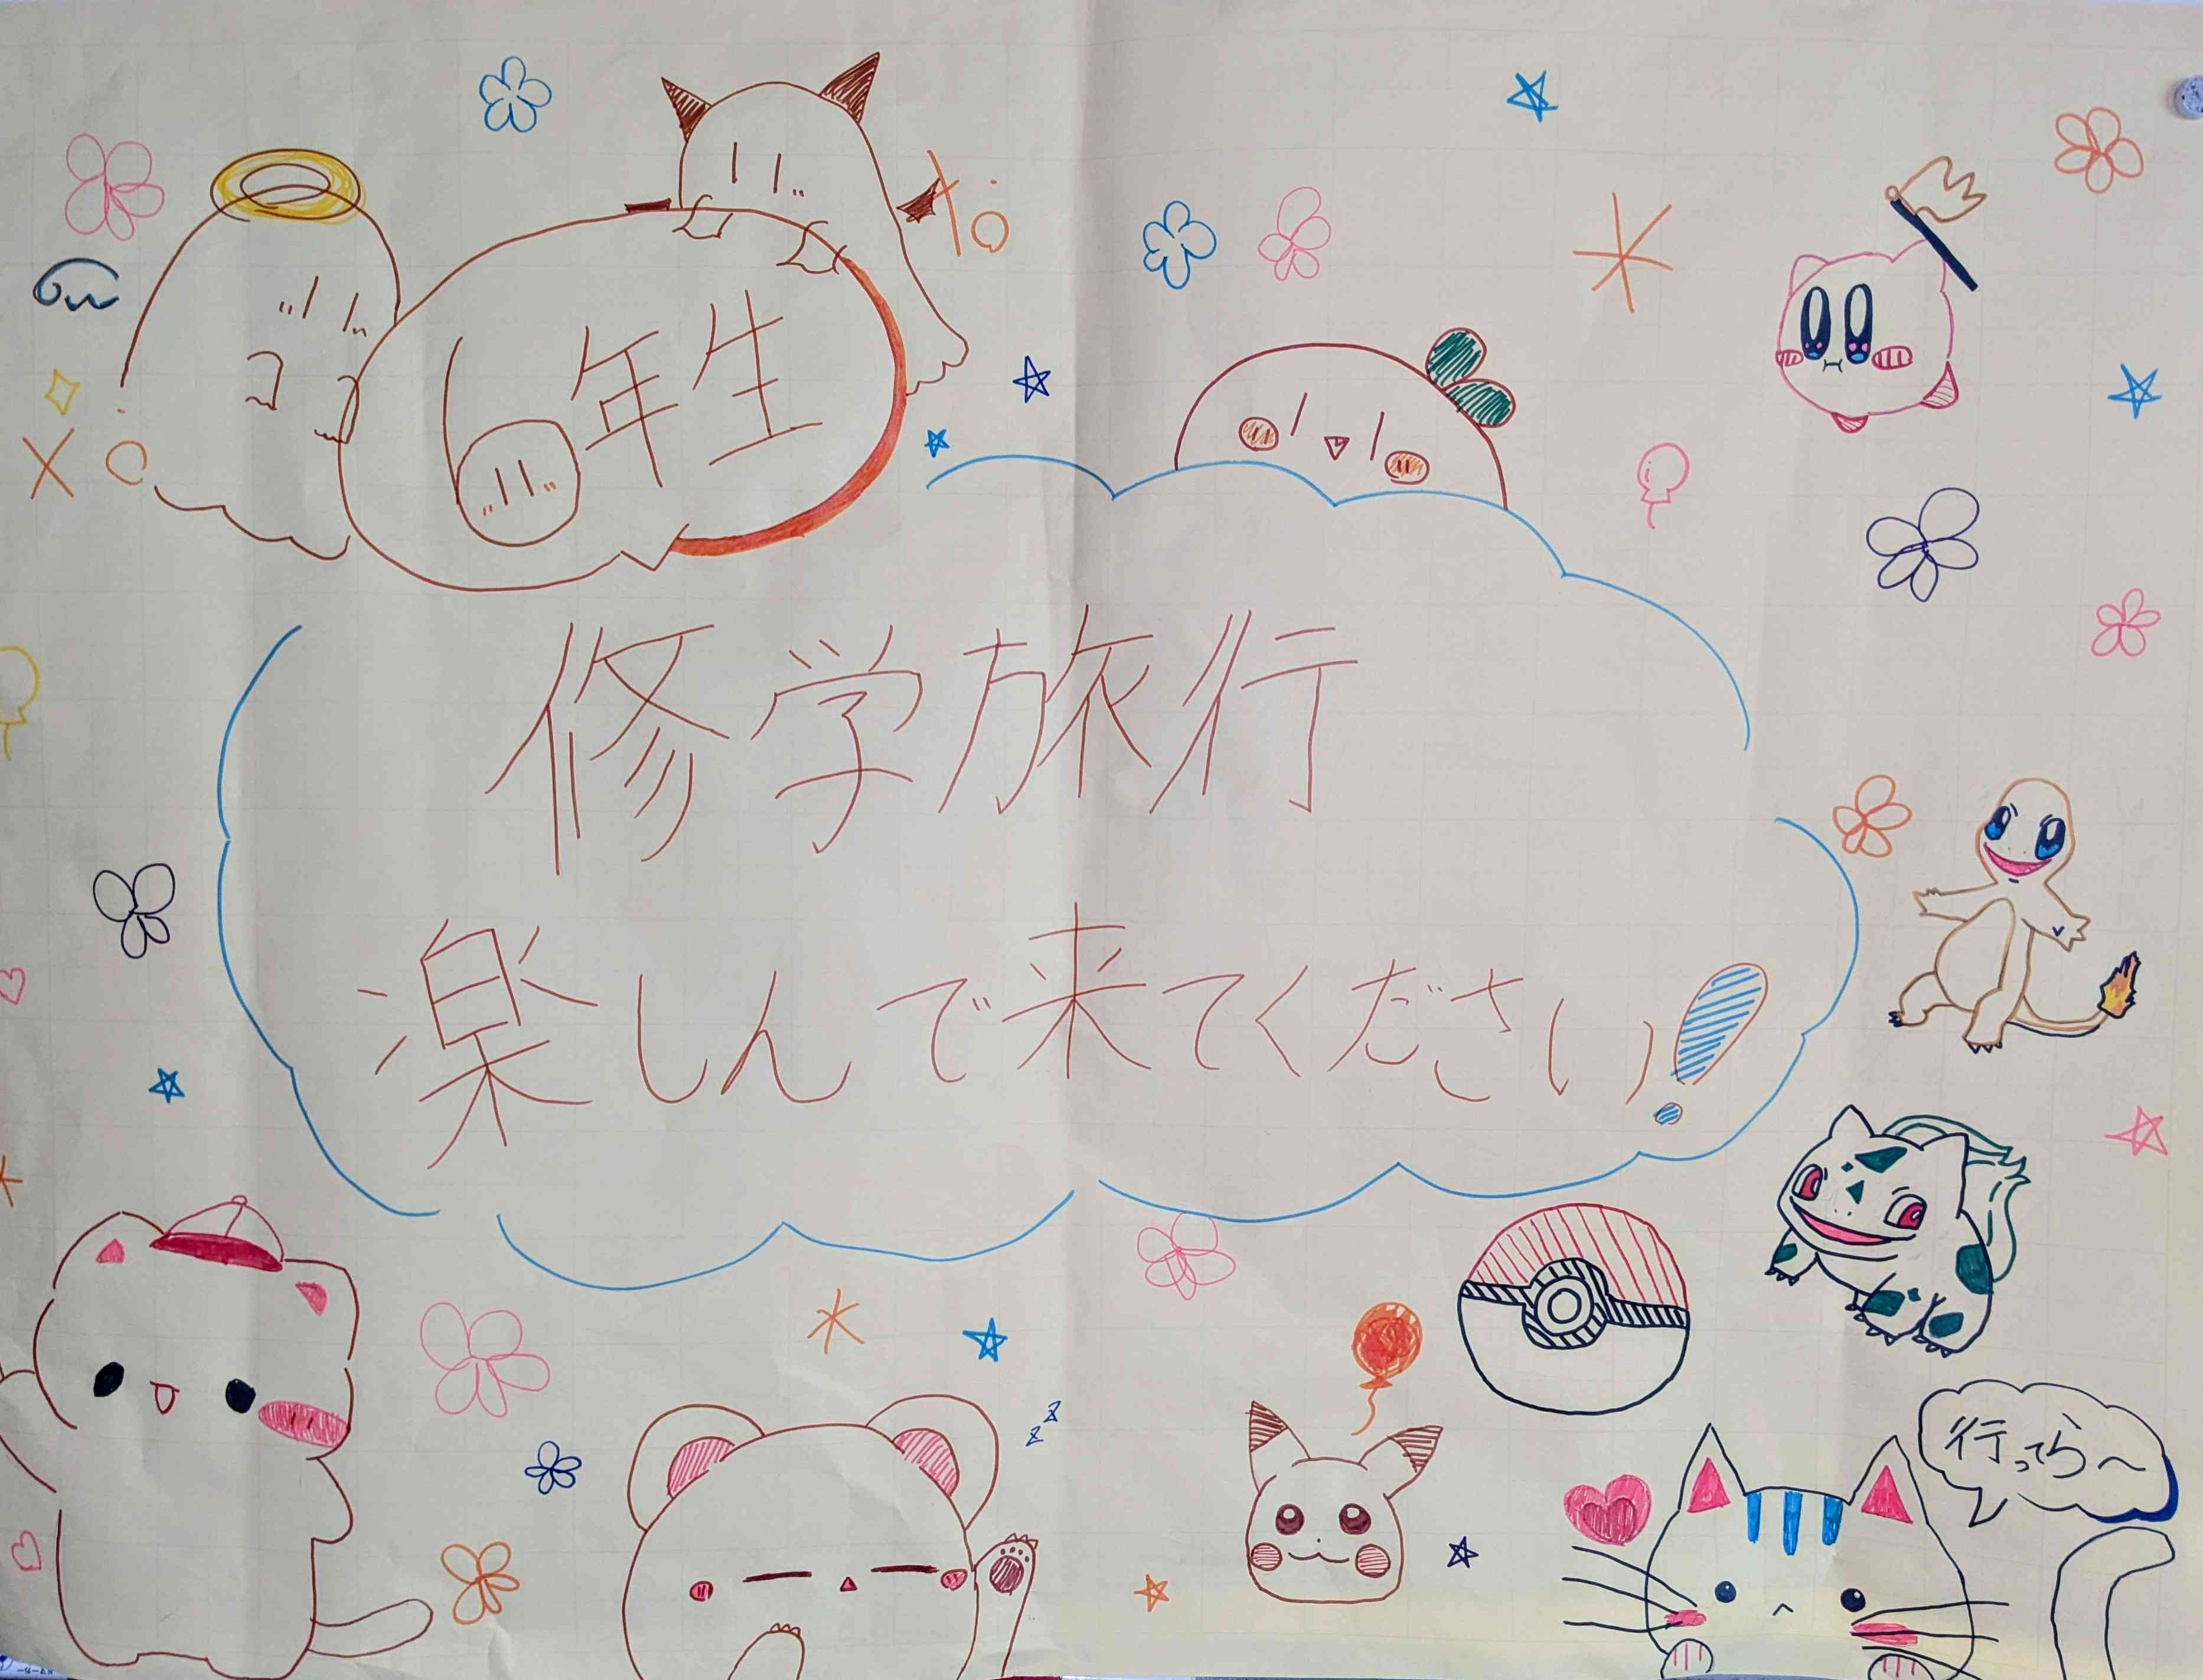 6年生
修学旅行
楽しんで来てください!
zz
行ってら〜